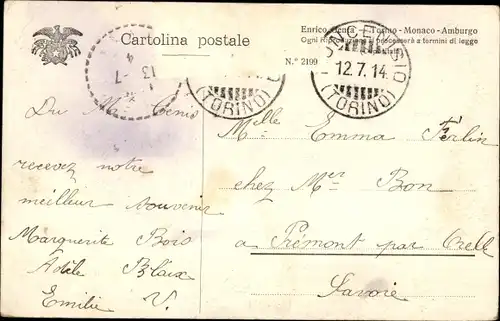 Cartolina postale
Enrico Genta - Torino - Monaco - Amburgo
Ogni Riproduzione si procederà a termini di legge
N.° 2199
13 -7
(TORINO)
12.7.14.
(TORINO)
Du M. Cenis
recevez notre
meilleur souvenir
Marguerite Bois
Adèle Blaix
Emilie V.
Melle Emma Ferlin
chez Mer Bon
à Prémont par Crell
Savoie